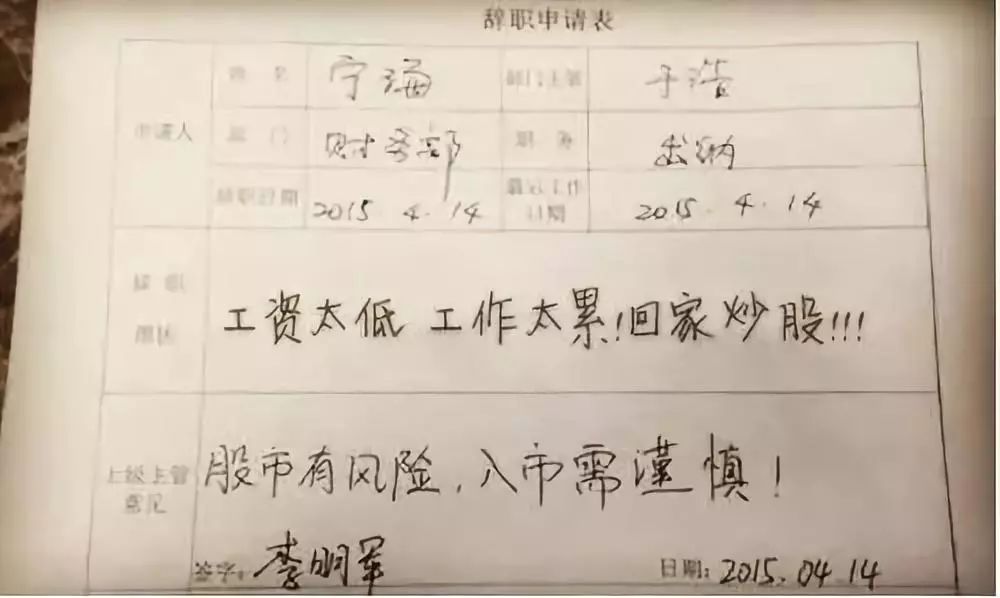 辞职申请表
姓名 宁海 部门主管 于浩
申请人
部门 财务部 职务 出纳
辞职日期 2015.4.14 最后工作日期 2015.4.14
辞职原因
工资太低 工作太累!回家炒股!!!
上级主管意见
股市有风险,入市需谨慎!
签字:李明军 日期:2015.04.14